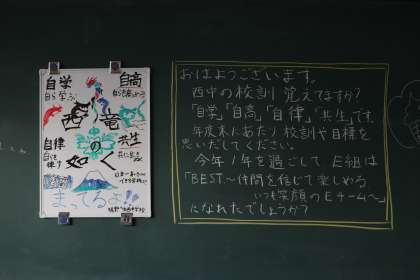 自学
自ら学ぶ
自高
自ら高める
西 竜
の
自律
共生
共に生きる
如く
まってるよ!!
おはようございます。
西中の校訓 覚えてますか?
「自学」「自高」「自律」「共生」です。
年度末にあたり校訓や目標を
思いだしてください。
今年1年を過ごして E組は
「BEST.〜仲間を信じて楽しめる
いつも笑顔のEチーム〜」
になれたでしょうか?